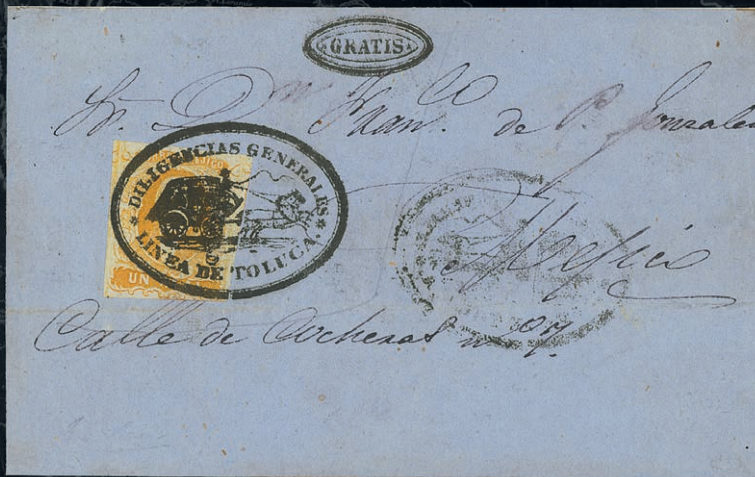 GRATIS
Sr. Dn. Franco. de P. Gonzale
DILIGENCIAS GENERALES
LINEA DE TOLUCA.
UN
Mejico
Calle de Cocheras no. 7.